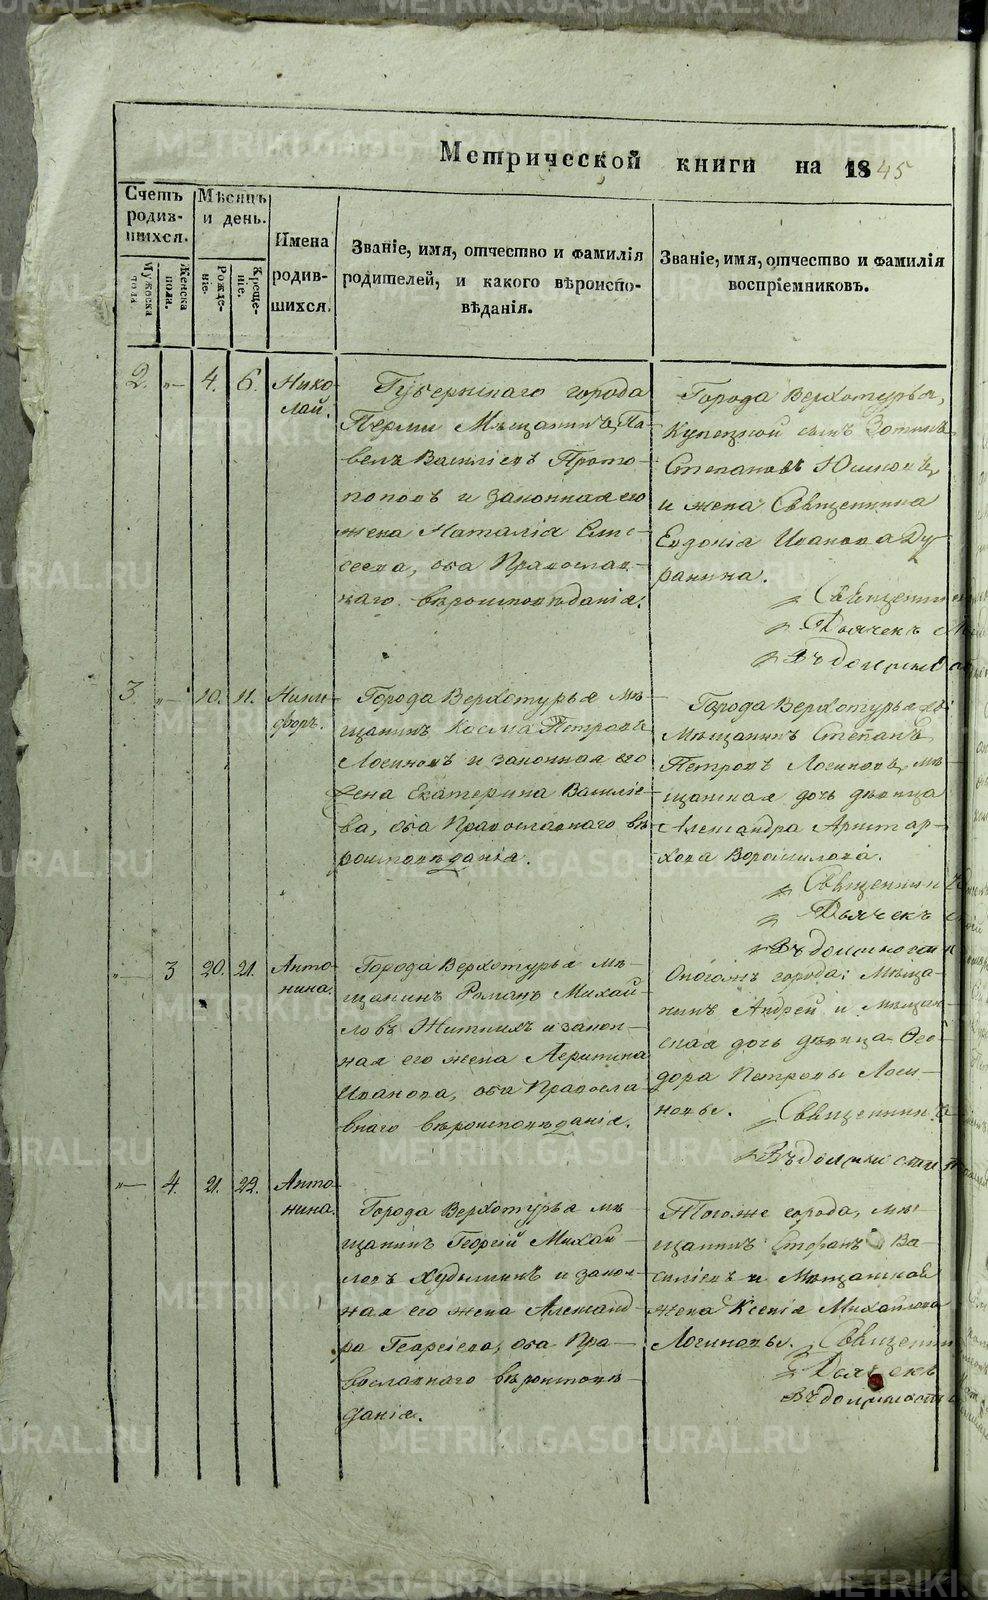 METRIKI.GASO-URAL.RU
Метрической книги на 1845
Счетъ родив-шихся.
Мѣсяцъ и день.
Имена родив-шихся.
Званіе, имя, отчество и фамилія родителей, и какого вѣроиспо-вѣданія.
Званіе, имя, отчество и фамилія воспріемниковъ.
Мужеска пола.
Женска пола.
Рожде-ніе.
Креще-ніе.
2. „— 4. 6. Нико-
лай.
Губернскаго города
Перми Мѣщанинъ Па-
велъ Васильевъ Прото-
поповъ и законная его
жена Наталія Ели-
сеева, оба Православ-
наго вѣроисповѣданія.
Города Верхотурья,
Купецкой сынъ Зотикъ
Степановъ
и жена Священника
Евдокія Иванова Ду-
ранина.
Священник
Дьячекъ
Въ должнос
3. „— 10. 11. Ники-
форъ.
Города Верхотурья мѣ-
щанинъ Косма Петровъ
Логиновъ и законная его
жена Екатерина Василіе-
ва, оба Православнаго вѣ-
роисповѣданія.
Города Верхотурья
Мѣщанинъ Степанъ
Петровъ Логиновъ, мѣ-
щанская дочь дѣвица
Александра Аристар-
хова Ворошилова.
Священник
Дьячекъ
Въ должности
„— 3 20. 21. Анто-
нина.
Города Верхотурья мѣ-
щанинъ Романъ Михай-
ловъ Житниковъ и закон-
ная его жена
Иванова, оба Правосла
внаго вѣроисповѣданія.
города: Мѣща-
нинъ Андрей и мѣщан-
ская дочь дѣвица Ѳео-
дора Петровы Логи-
новы.
Священник
Въ должности
„— 4. 21. 22. Анто-
нина.
Города Верхотурья мѣ-
щанинъ Георгій Михай-
ловъ и закон-
ная его жена Александ-
ра Георгіева, оба Пра-
вославнаго вѣроисповѣ-
данія.
Тогоже города, мѣ-
щанинъ Стефанъ Ва-
силіевъ и Мѣщанская
жена Ксенія Михайлова
Логиновы.
Священник
Дьячекъ
Въ должности